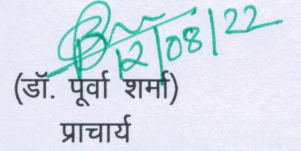 12/08/22
(डॉ. पूर्वा शर्मा)
प्राचार्य